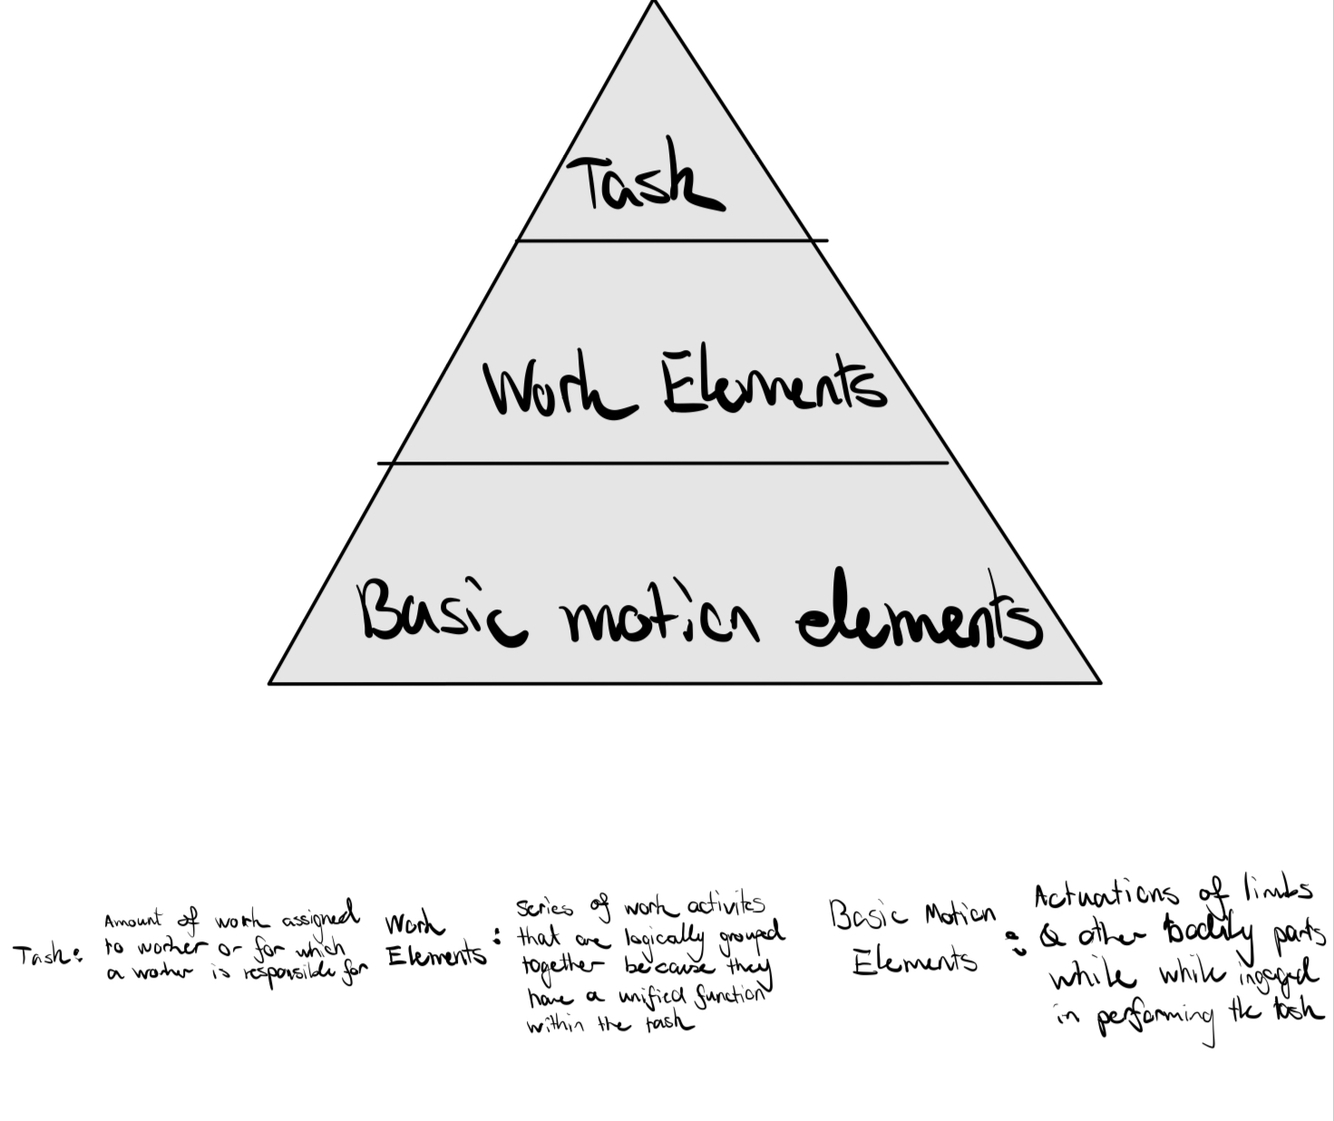 Task
Work Elements
Basic motion elements
Task:
Amount of work assigned
to worker or for which
a worker is responsible for
Work
Elements :
Series of work activites
that are logically grouped
together because they
have a unified function
within the task
Basic Motion
Elements :
Actuations of limbs
& other bodily parts
while while ingaged
in performing the task